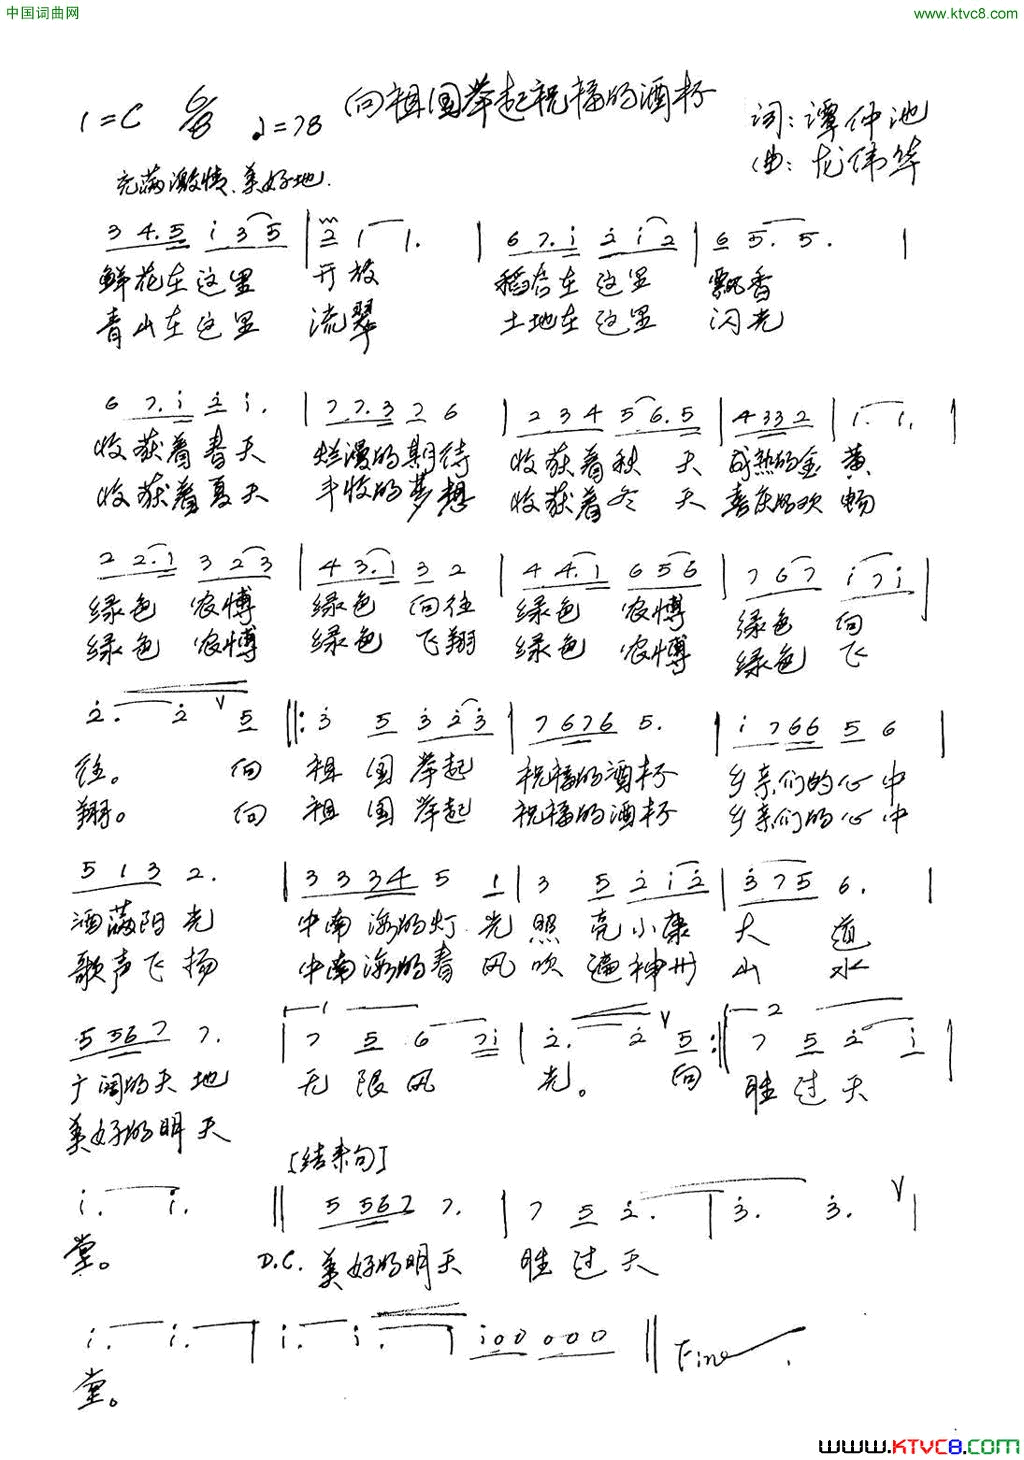 中国词曲网
www.ktvc8.com
向祖国举起祝福的酒杯
1=C 6/8 ♩=78
词:谭仲池
曲:龙伟华
充满激情、美好地.
3 4. 5 i 3 5 | 2 1 1. | 6 7. i 2 i 2 | 6 5. 5. |
鲜花在这里 开放 稻谷在这里 飘香
青山在这里 流翠 土地在这里 闪光
6 7. i 2 i. | 7 7. 3 2 6 | 2 3 4 5 6. 5 | 4 3 3 2 | 1. 1. |
收获着春天 烂漫的期待 收获着秋 天 成熟的金 黄
收获着夏天 丰收的梦想 收获着冬 天 喜庆的欢 畅
2 2. 1 3 2 3 | 4 3. 1 3 2 | 4 4. 1 6 5 6 | 7 6 7 i 7 i |
绿色 农博 绿色 向往 绿色 农博 绿色 向
绿色 农博 绿色 飞翔 绿色 农博 绿色 飞
2. 2 V 5 ‖: 3 5 3 2 3 | 7 6 7 6 5. | i 7 6 6 5 6 |
往。 向 祖 国 举起 祝福的酒杯 乡亲们的心中
翔。 向 祖 国 举起 祝福的酒杯 乡亲们的心中
5 1 3 2. | 3 3 3 4 5 1 | 3 5 2 i 2 | 3 7 5 6. |
洒满阳光 中南海的灯 光 照 亮小康 大 道
歌声飞扬 中南海的春 风 吹 遍神州 山 水
5 5 6 7 7. | 1 7 5 6 7 i | 2. 2 V 5 :‖ 2 7 5 2 i |
广阔的天地 无 限 风 光。 向 胜 过 天
美好的明天
[结束句]
i. i. ‖ 5 5 6 7 7. | 7 5 2. | 3. 3. V |
堂。 D.C. 美好的明天 胜 过 天
i. i. | i. i. | i 0 0 0 0 0 ‖ Fine
堂。
www.KTVC8.com